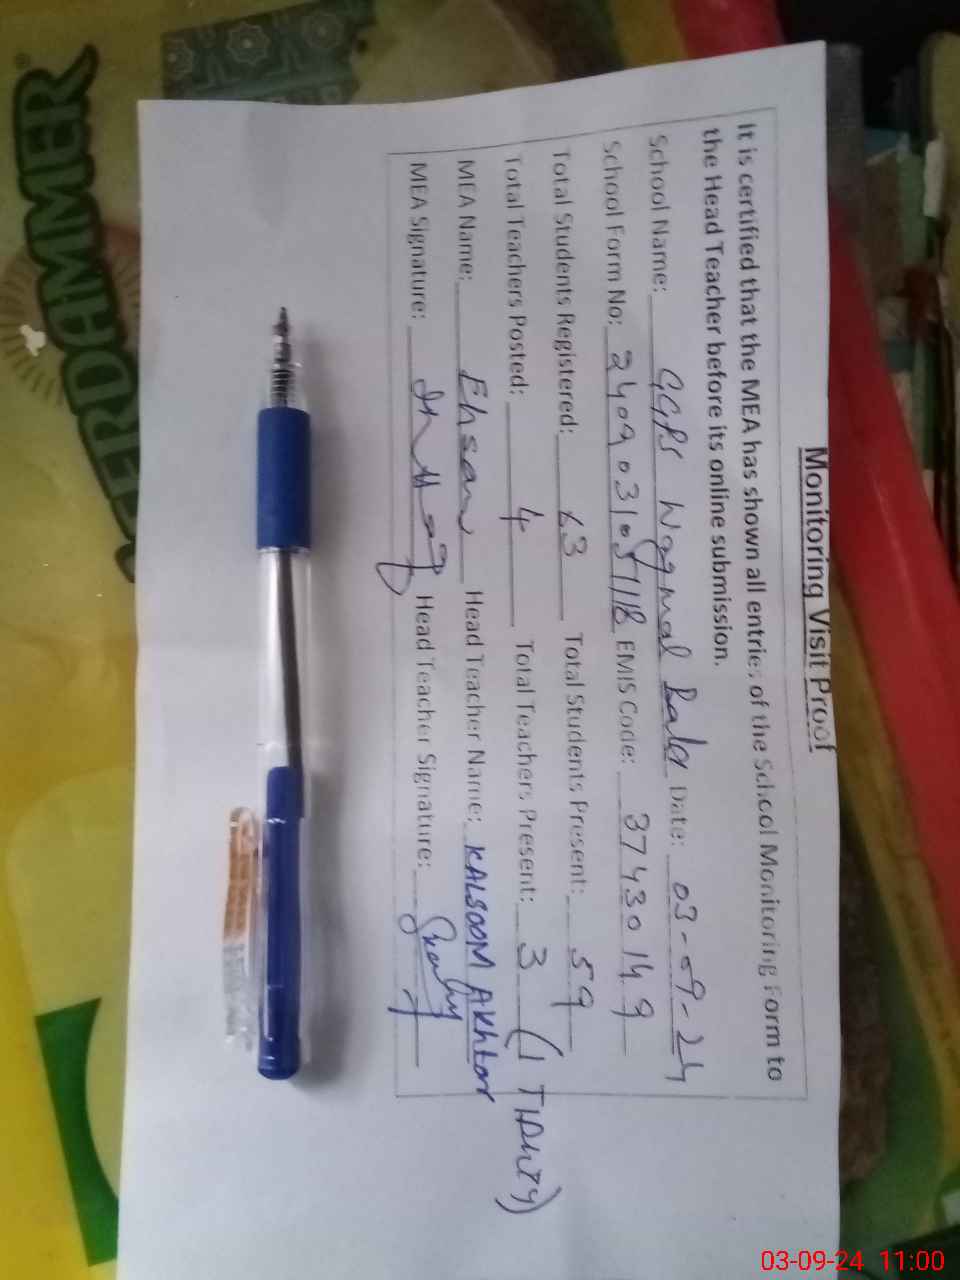 Monitoring Visit Proof
It is certified that the MEA has shown all entries of the School Monitoring Form to
the Head Teacher before its online submission.
School Name: GGPS Wagmal Bala Date: 03-09-24
School Form No: 2409031051118 EMIS Code: 37430149
Total Students Registered: 63 Total Students Present: 59
Total Teachers Posted: 4 Total Teachers Present: 3 (1 T/Duty)
MEA Name: Ehsan Head Teacher Name: KALSOOM AKhtar
MEA Signature: Head Teacher Signature:
LEERDAMMER
03-09-24 11:00